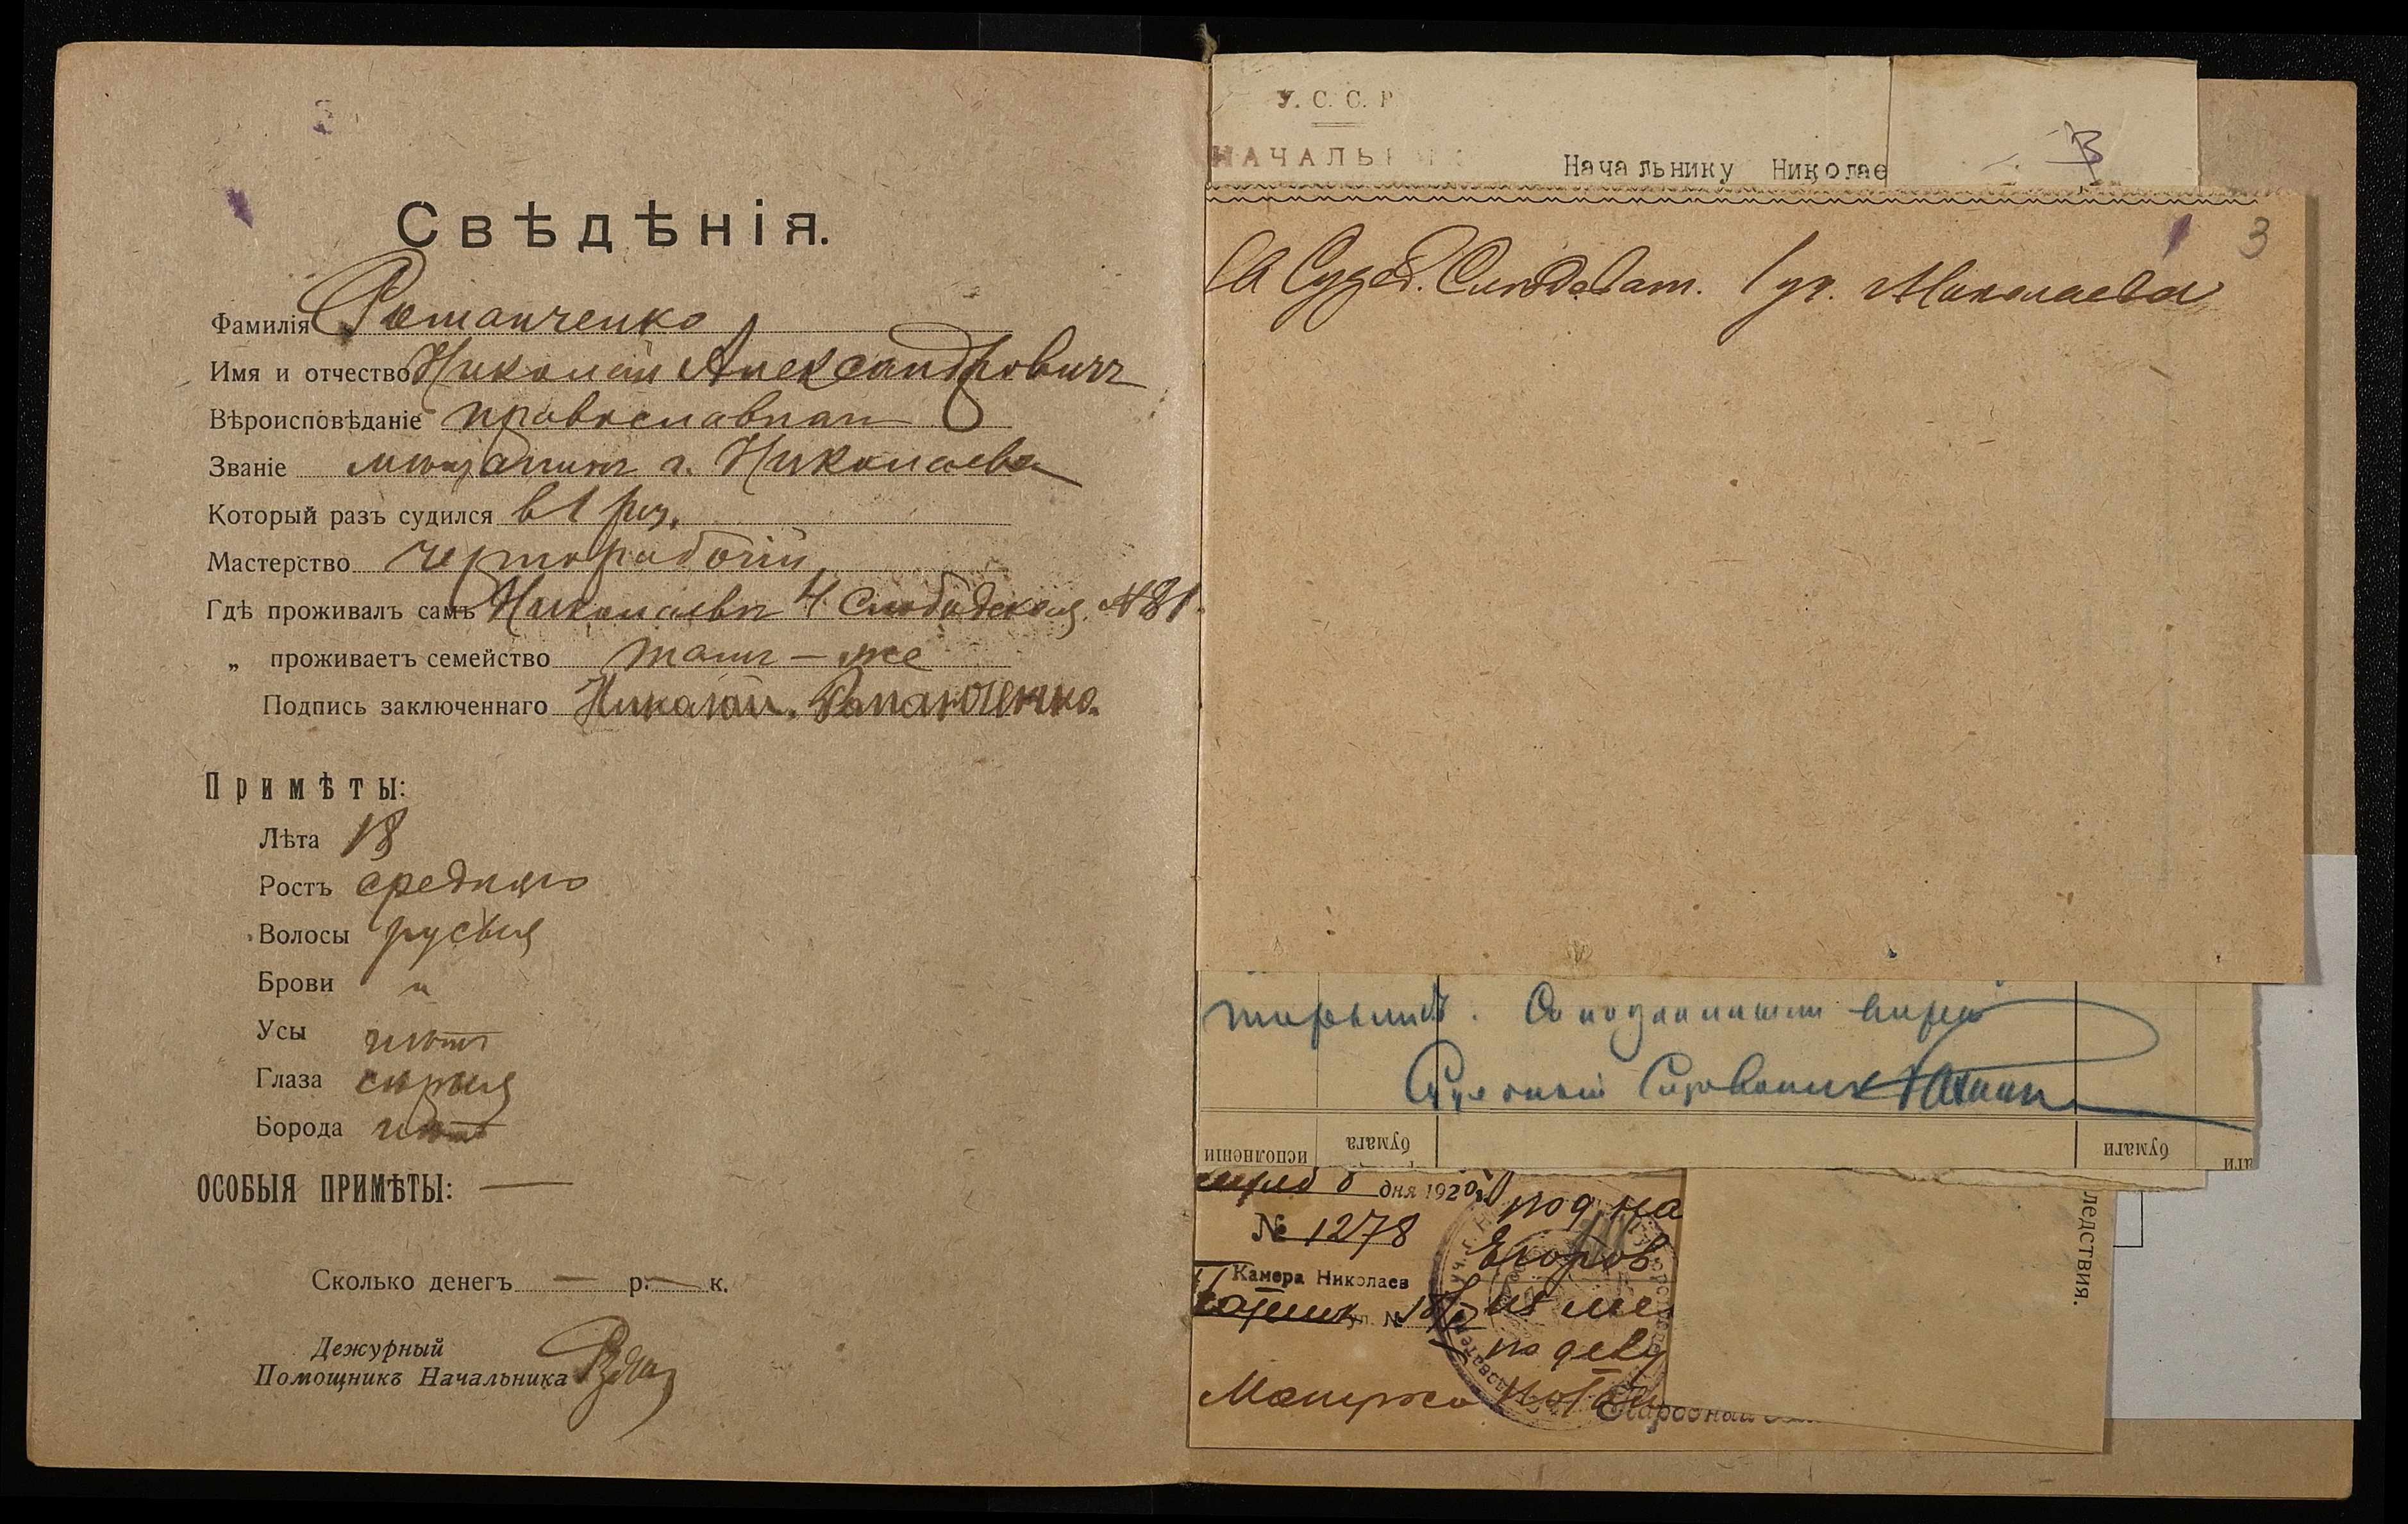 Свѣдѣнія.
Фамилія Романченко
Имя и отчество Николай Александровичъ
Вѣроисповѣданіе православнаго
Званіе мѣщанинъ г. Николаева
Который разъ судился в 1 раз.
Мастерство чернорабочій
Гдѣ проживалъ самъ Николаевъ 4 Слободская № 81
„ проживаетъ семейство тамъ - же
Подпись заключеннаго Николай. Романченко.
Примѣты:
Лѣта 18
Ростъ средняго
Волосы русыя
Брови "
Усы нѣтъ
Глаза сѣрыя
Борода нѣтъ
ОСОБЫЯ ПРИМѢТЫ: —
Сколько денегъ — р. — к.
Дежурный
Помощникъ Начальника
У. С. С. Р
НАЧАЛЬНИК
Начальнику Николае
3
За Судеб. Слѣдоват. 1 уч. Николаева
Судебный Слѣдователь
исполненіи бумага бумаги аги
дня 1920 г.
№ 1278
Камера Николаев
ул. №
под на
Егоров
из ме
по делу
Народный
ледствия.